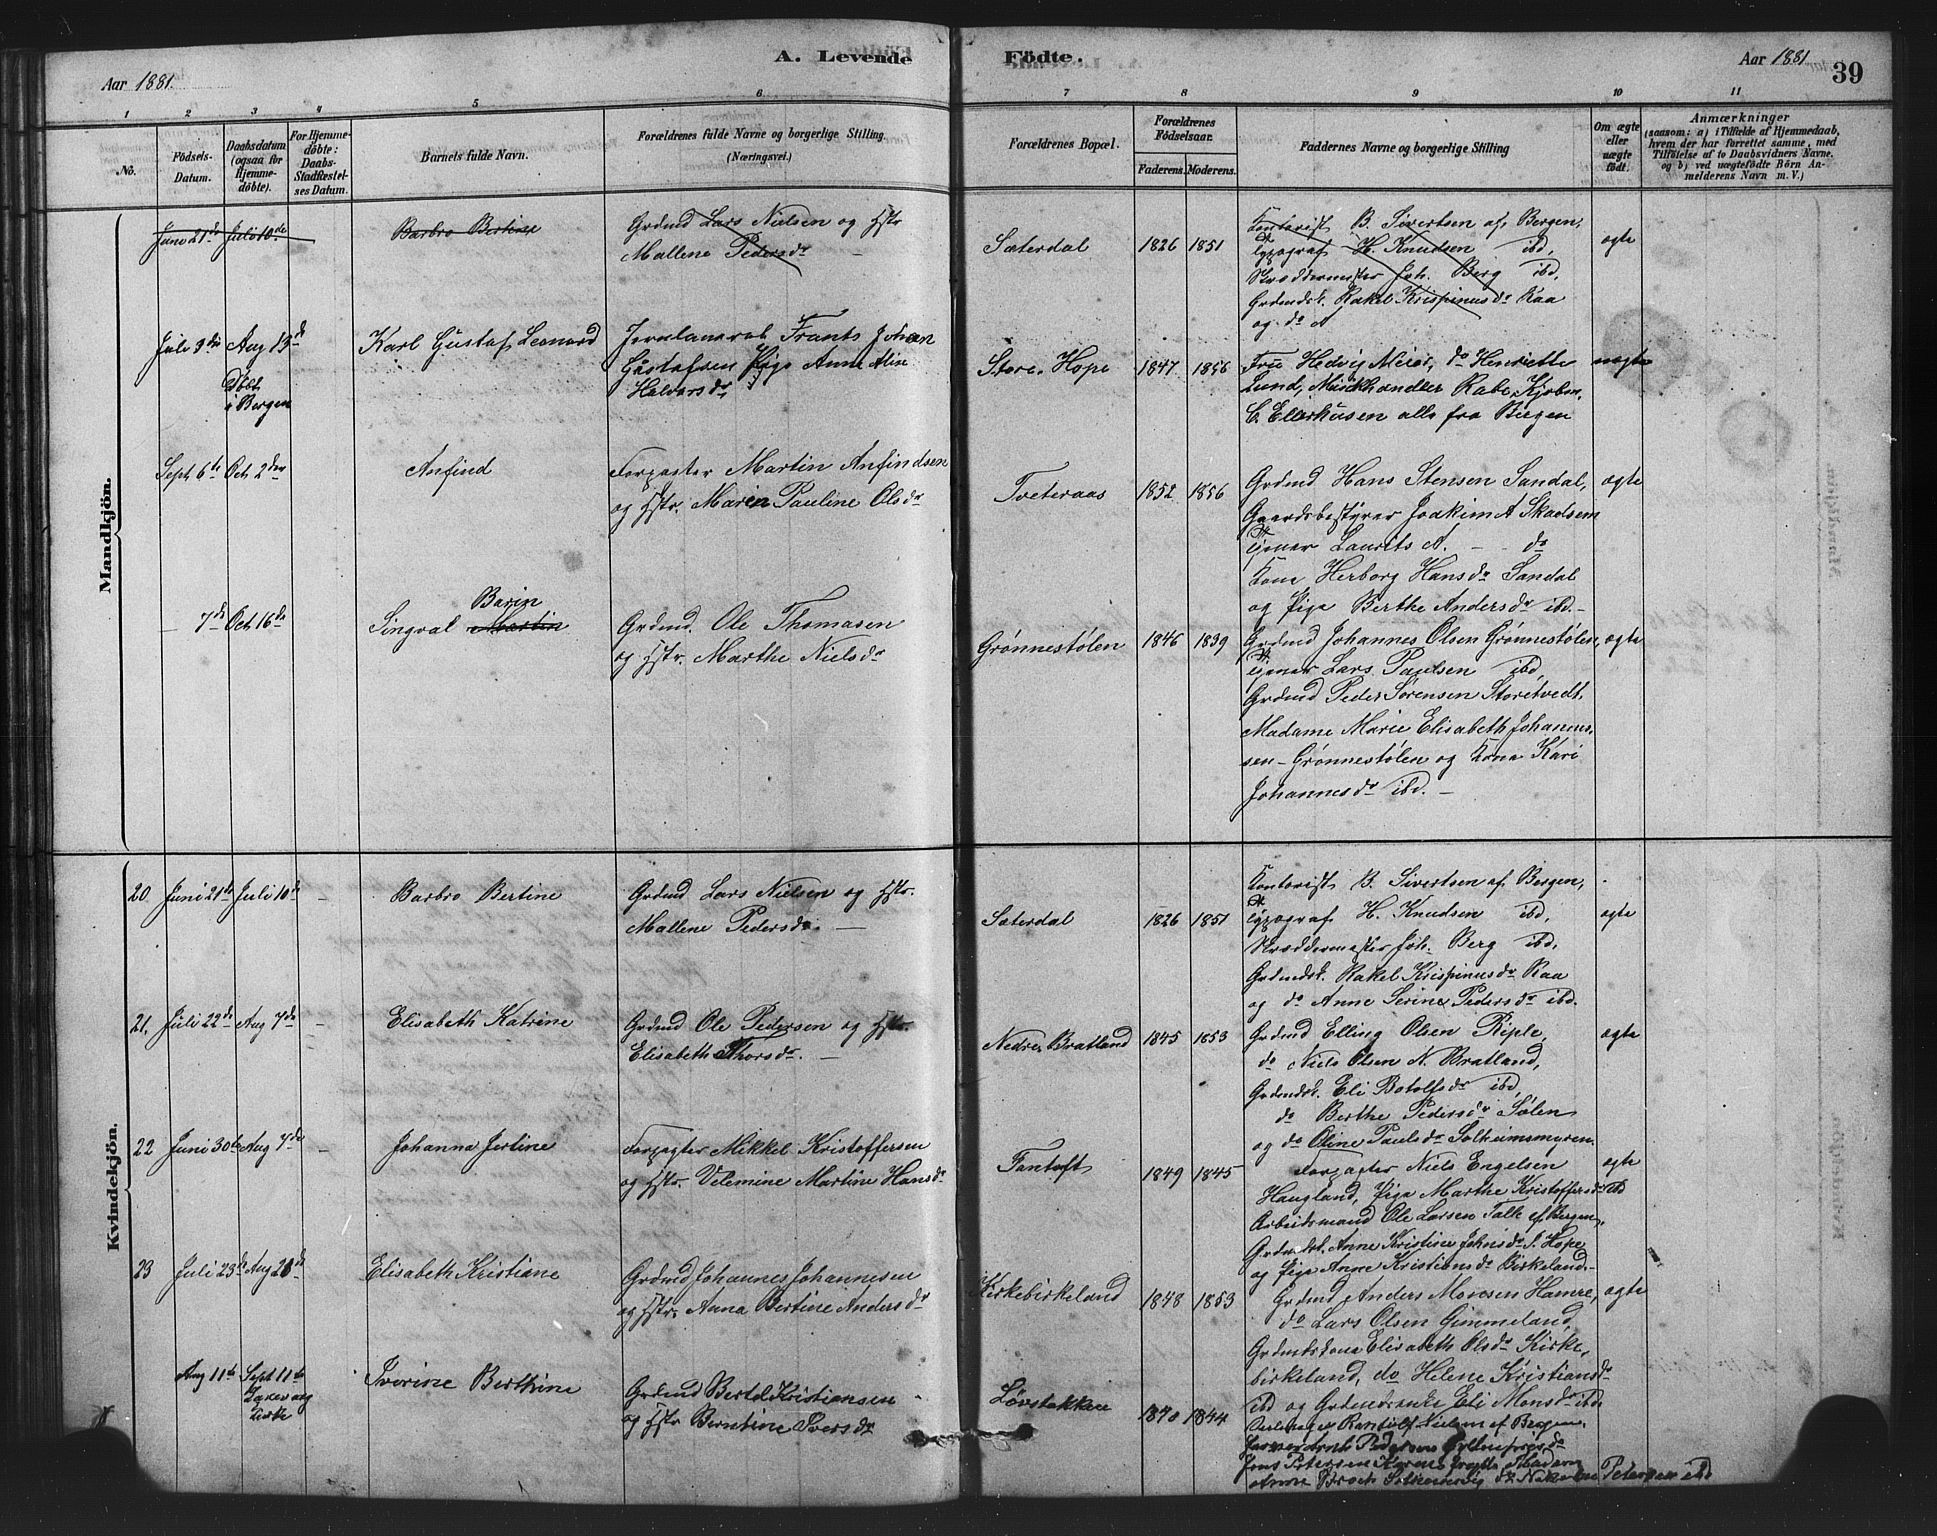 A. Levende Födte.
Aar 1881.
Aar 1881
39
1 2 3 4 5 6 7 8 9 10 11
No.
Födsels-Datum.
Daabsdatum (ogsaa for Hjemme-döbte).
For Hjemme-döbte: Daabs-Stadfæstel-ses Datum.
Barnets fulde Navn.
Forældrenes fulde Navne og borgerlige Stilling.
(Næringsvei.)
Forældrenes Bopæl.
Forældrenes Födselsaar.
Faderens. Moderens.
Faddernes Navne og borgerlige Stilling
Om ægte eller uægte födt.
Anmærkninger
(saasom: a) i Tilfælde af Hjemmedaab, hvem der har forrettet samme, med Tilföielse af to Daabsvidners Navne, og b) ved uægtefödte Börn Anmelderens Navn m. V.)
Mandkjön.
Juni 21de Juli 10de Barbro Bertine
Grdmd Lars Nielsen og Hstr
Mallene Pedersdr
Sæterdal 1826 1851
Kontorist B. Sivertsen af Bergen,
Typograf H. Knudsen ibd,
Skræddermester Joh. Berg ibd,
Grdmdsk. Rakel Krispinusdr Raa
og do A
ægte
Juli 3die Aug 13de
Döbt
i Bergen
Karl Gustaf Leonard
Frants Johan
Gustafsen Pige Anne Aline
Halvorsdr
Store Hope 1847 1856
Frue Hedvig Meier, do Henriette
Lund, Musikhandler Rabe, Kjøbm.
C. Ellerhusen alle fra Bergen
uægte
Sept 6te Oct 2den Anfind
Forpagter Martin Anfindsen
og Hstr. Maren Pauline Olsdr
Tveteraas 1852 1856
Grdmd Hans Stensen Sandal,
Gaardsbestyrer Joakim A Skadsem
Tjener Laurits A. - do
Kone Herborg Hansdr Sandal
og Pige Berthe Andersdr ibd.-
ægte
7de Oct 16de Singval Martin
Barin
Grdmd. Ole Thomasen
og Hstr. Marthe Nielsdr
Grønnestølen 1846 1839
Grdmd Johannes Olsen Grønnestølen,
Tjener Lars Paulsen ibd,
Grdmd Peder Sørensen Storetvedt,
Madame Marie Elisabeth Johannes-
sen - Grønnestølen og Kone Kari
Johannesdr ibd. -
ægte
Kvindekjön.
20. Juni 21de Juli 10de - Barbro Bertine
Grdmd Lars Nielsen og Hstr.
Mallene Pedersdr. -
Sæterdal 1826 1851
Kontorist B. Sivertsen af Bergen,
Typograf H. Knudsen ibd,
Skræddermester Joh. Berg ibd.
Grdmdsk. Rakel Krispinusdr Raa
og do Anne Serine Pedersdr ibd.
ægte
21. Juli 22de Aug 7de - Elisabeth Katrine
Grdmd Ole Pedersen og Hstr.
Elisabeth Thorsdr. -
Nedre Bratland 1845 1853
Grdmd Elling Olsen Riple,
do Niels Olsen N. Bratland,
Grdmdsk. Eli Botolfsdr ibd,
do Berthe Pedersdr Sølen
og do Oline Paulsdr Solheimsmyren
ægte
22 Juni 30te Aug 7de - Johanna Jertine
Forpagter Mikkel Kristoffersen
og Hstr. Velemine Martine Hansdr
Fantoft 1849 1845
Forpagter Niels Engelsen
Haugland, Pige Marthe Kristoffersdr ibd
Arbeidsmand Ole Larsen Falk af Bergen,
Grdmdsk. Anne Kristine Johnsdr S. Hope
og Pige Anne Kristiansdr Birkeland.-
ægte
23 Juli 23de Aug 28de Elisabeth Kristiane
Grdmd Johannes Johannesen
og Hstr. Anna Bertine Andersdr
Kirkebirkeland 1848 1853
Grdmd Anders Monsen Hamre,
do Lars Olsen Gimmeland,
Grdmdskone Elisabeth Olsdr Kirke-
birkeland, do Helene Kristiansdr
ibd og Eli Monsdr ibd
ægte
Aug 11te Sept 11te
Kirke
Iverine Berthine
Grdmd Bertel Kristiansen
og Hstr Berntine Iversdr
Løvstakken 1840 1844
Nielsen af Bergen
Pedersen
Jens Petersen Madam
Anne Petersen ibd